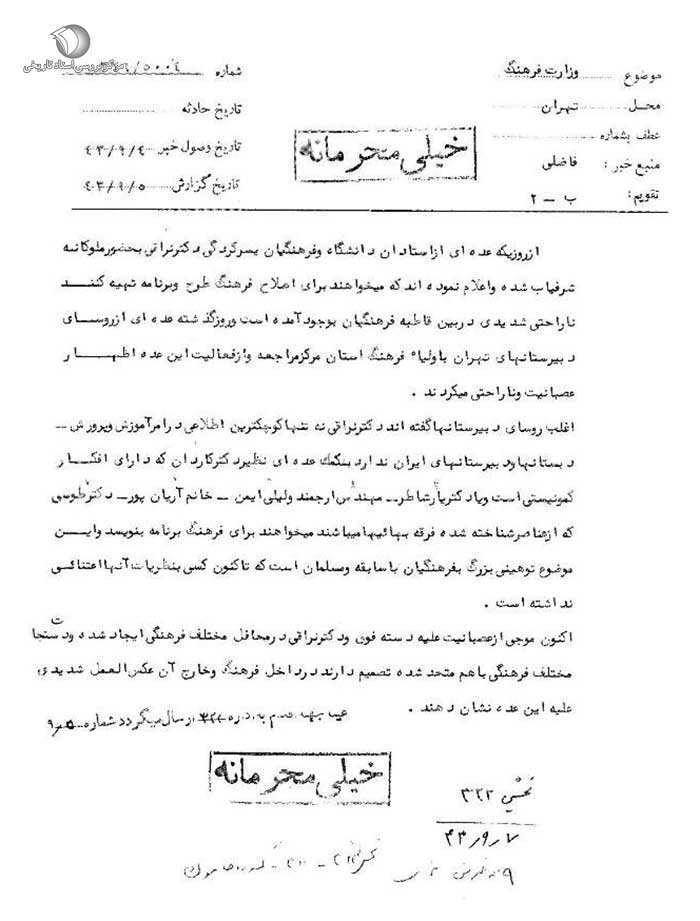 مرکز بررسی اسناد تاریخی
موضوع وزارت فرهنگ
شماره
محل تهران
تاریخ حادثه
عطف بشماره
تاریخ وصول خبر ۴۳/۹/۴
منبع خبر: فاضلی
تاریخ گزارش ۴۳/۹/۵
تقویم: ب - ۲
خیلی محرمانه
ازروزیکه عده ای ازاستادان دانشگاه وفرهنگیان بسرکردگی دکترنراقی بحضورملوکانه
شرفیاب شده واعلام نموده اندکه میخواهند برای اصلاح فرهنگ طرح وبرنامه تهیه کنند
ناراحتی شدیدی دربین قاطبه فرهنگیان بوجودآمده است وروزگذشته عده ای ازروسای
دبیرستانهای تهران باولیاء فرهنگ استان مرکزمراجعه وازفعالیت این عده اظهار
عصبانیت وناراحتی میکردند .
اغلب روسای دبیرستانهاگفته اند دکترنراقی نه تنهاکوچکترین اطلاعی درامرآموزش وپرورش -
دبستانهاودبیرستانهای ایران ندارد بکمک عده ای نظیردکترکاردان که دارای افکار
کمونیستی است ویادکتریارشاطر - مهندس ارجمند ولیلی ایمن - خانم آریان پور - دکترطوسی
که ازعناصرشناخته شده فرقه بهائیهامیباشند میخواهند برای فرهنگ برنامه بنویسد واین
موضوع توهینی بزرگ بفرهنگیان باسابقه ومسلمان است که تاکنون کسی بنظریات آنهااعتنائی
نداشته است .
اکنون موجی ازعصبانیت علیه دسته فوق ودکترنراقی درمحافل مختلف فرهنگی ایجاد شده ودستجات
مختلف فرهنگی باهم متحد شده تصمیم دارند درداخل فرهنگ وخارج آن عکس العمل شدیدی
علیه این عده نشان دهند .
ارسال میگردد شماره
خیلی محرمانه
بخش ۳۲۲
۴۳/۹/۷